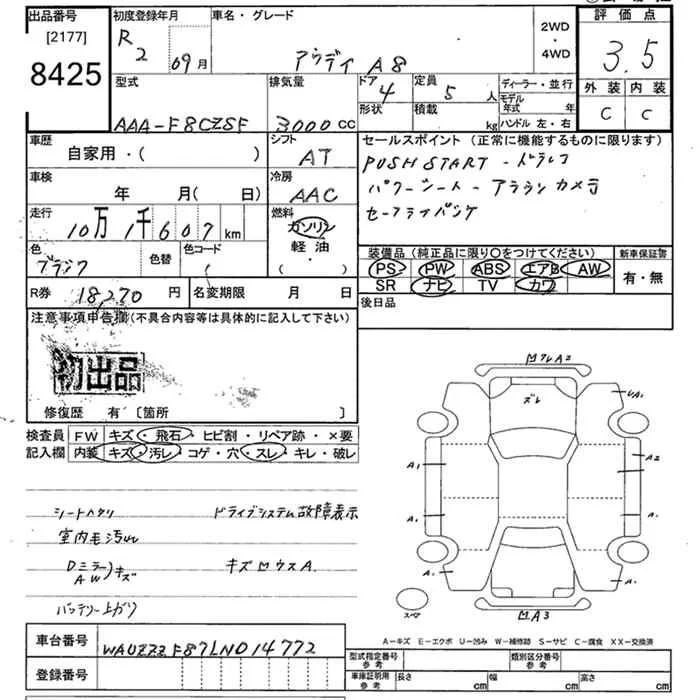 出品番号
[2177]
8425
初度登録年月
R 2 09月
車名・グレード
アウディ A8
2WD
・
4WD
評価点
3.5
外装 内装
C C
型式
AAA-F8CZSF
排気量
3000cc
ドア 4
形状
定員 5 人
積載 kg
ディーラー・並行
モデル年式 年
ハンドル 左・右
車歴
自家用・( )
シフト
AT
車検
年 月( 日)
冷房
AAC
走行
10万1千607km
燃料
ガソリン
軽油
( ・ )
色
ブラック
色替
色コード
( )
セールスポイント (正常に機能するものに限ります)
PUSH START - ドラレコ
パワーシート - アラウンカメラ
セーフティパック
装備品 (純正品に限り〇をつけてください)
PS PW ABS エアB AW
SR ナビ TV カワ
新車保証書
有・無
後日品
R券 18,270 円
名変期限 月 日
注意事項申告欄(不具合内容等は具体的に記入して下さい)
初出品
修復歴 有〔箇所 〕
検査員記入欄
FW キズ・飛石・ヒビ割・リペア跡・×要
内装 キズ・汚レ・コゲ・穴・スレ・キレ・破レ
シートヘタリ
ドライブシステム故障表示
室内毛汚レ
Dミラー
AW
)キズ
キズ凹ウスA.
バッテリー上がり
凹 ワレ A2
ズレ
A1
A2
A.
A.
A.
A.
スペア
凹A3
A-キズ E-エクボ U-凹み W-補修跡 S-サビ C-腐食 XX-交換済
車台番号
WAUZZZF87LN014772
登録番号
型式指定番号
参考
類別区分番号
参考
車庫証明用
参考
長さ cm
幅 cm
高さ cm